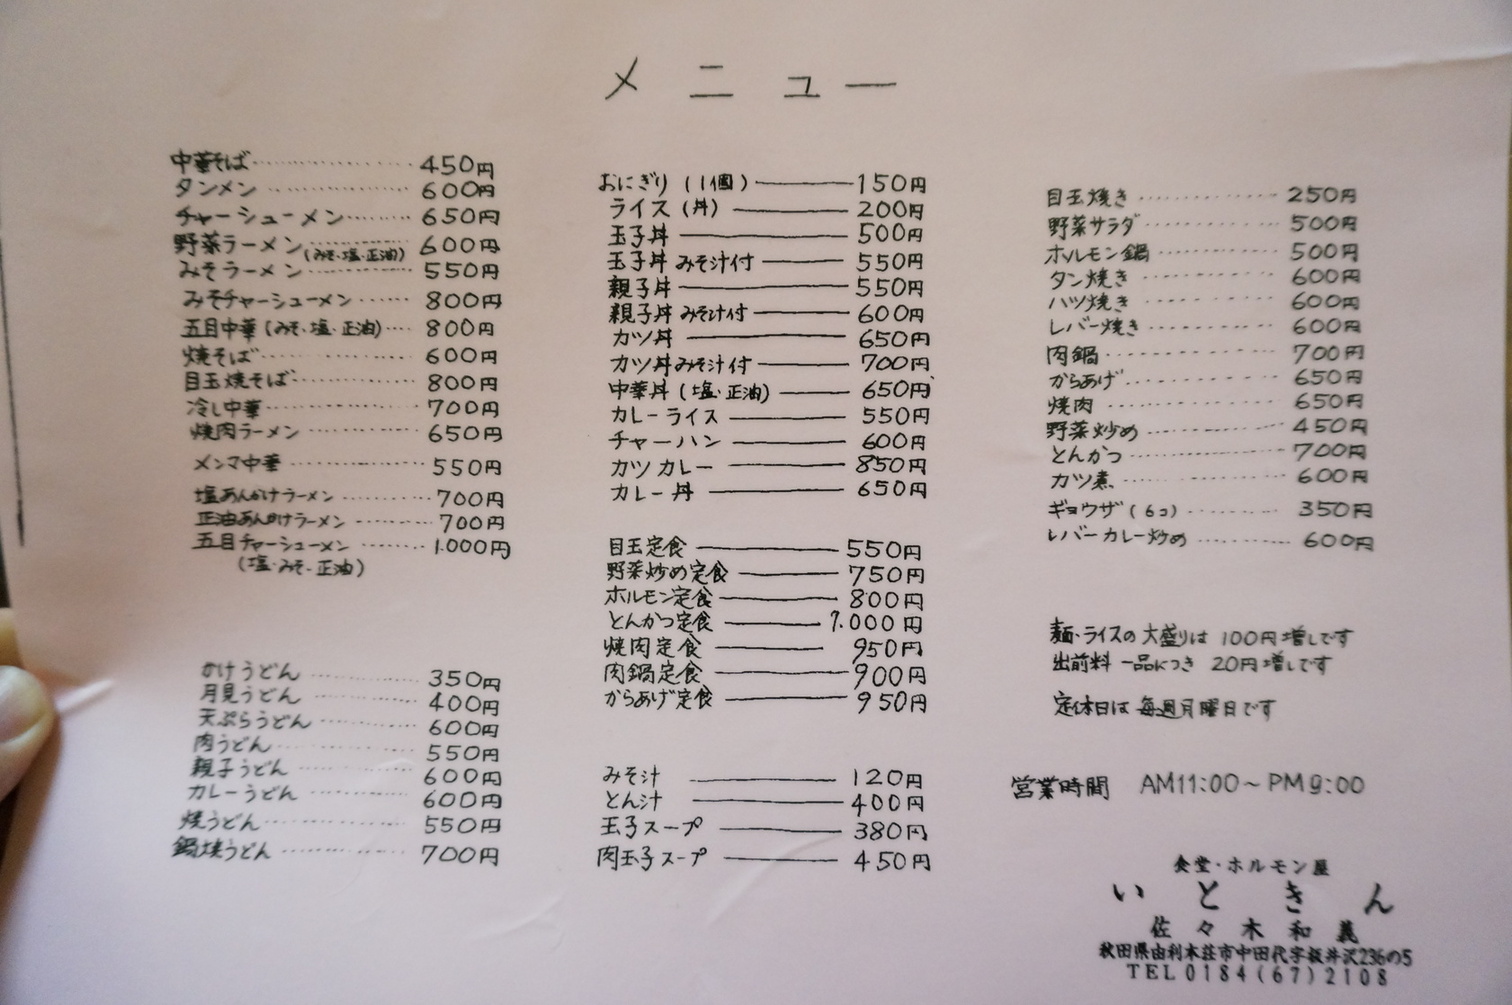 メニュー
中華そば 450円
タンメン 600円
チャーシューメン 650円
野菜ラーメン(みそ・塩・正油) 600円
みそラーメン 550円
みそチャーシューメン 800円
五目中華(みそ・塩・正油) 800円
焼そば 600円
目玉焼そば 800円
冷し中華 700円
焼肉ラーメン 650円
メンマ中華 550円
塩あんかけラーメン 700円
正油あんかけラーメン 700円
五目チャーシューメン 1.000円
(塩・みそ・正油)
かけうどん 350円
月見うどん 400円
天ぷらうどん 600円
肉うどん 550円
親子うどん 600円
カレーうどん 600円
焼うどん 550円
鍋焼うどん 700円
おにぎり(1個) 150円
ライス(丼) 200円
玉子丼 500円
玉子丼みそ汁付 550円
親子丼 550円
親子丼みそ汁付 600円
カツ丼 650円
カツ丼みそ汁付 700円
中華丼(塩・正油) 650円
カレーライス 550円
チャーハン 600円
カツカレー 850円
カレー丼 650円
目玉定食 550円
野菜炒め定食 750円
ホルモン定食 800円
とんかつ定食 1.000円
焼肉定食 950円
肉鍋定食 900円
からあげ定食 950円
みそ汁 120円
とん汁 400円
玉子スープ 380円
肉玉子スープ 450円
目玉焼き 250円
野菜サラダ 500円
ホルモン鍋 500円
タン焼き 600円
ハツ焼き 600円
レバー焼き 600円
肉鍋 700円
からあげ 650円
焼肉 650円
野菜炒め 450円
とんかつ 700円
カツ煮 600円
ギョウザ(6コ) 350円
レバーカレー炒め 600円
麺・ライスの大盛りは 100円増しです
出前料 一品につき 20円増しです
定休日は毎週月曜日です
営業時間 AM11:00～PM9:00
食堂・ホルモン屋
いときん
佐々木和義
秋田県由利本荘市中田代字板井沢236の5
TEL0184(67)2108